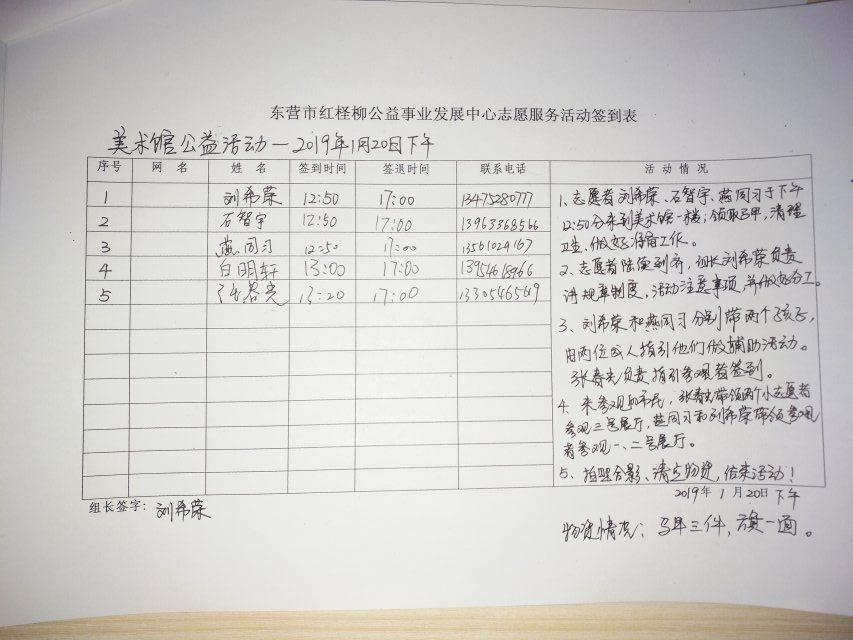 东营市红柽柳公益事业发展中心志愿服务活动签到表
美术馆公益活动—2019年1月20日下午
序号 网 名 姓 名 签到时间 签退时间 联系电话 活 动 情 况
1 刘希荣 12:50 17:00 13475280777
2 石智宇 12:50 17:00 13963368566
3 燕同习 12:50 17:00 13561024167
4 白明轩 13:00 17:00 13954618966
5 张春光 13:20 17:00 13305465619
1、志愿者刘希荣、石智宇、燕同习于下午
12:50分来到美术馆一楼;领取马甲,清理
卫生,做好准备工作。
2、志愿者陆续到齐,组长刘希荣负责
讲规章制度,活动注意事项,并做好分工。
3、刘希荣和燕同习分别带两个孩子,
由两位成人指引他们做辅助活动。
张春光负责指引参观者签到。
4、来参观的市民,张春光带领两个小志愿者
参观三号展厅,燕同习和刘希荣带领参观
者参观一、二号展厅。
5、拍照合影、清点物资,结束活动!
组长签字:刘希荣
2019年1月20日下午
物资情况:马甲三件,旗一面。